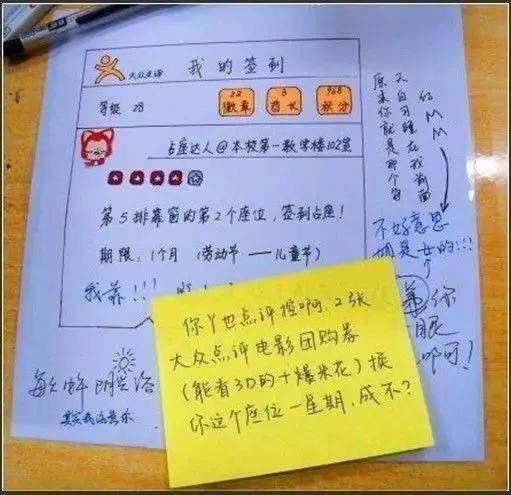 大众点评 我的签到
等级 28
22
徽章
3
酋长
968
积分
占座达人@本校第一教学楼102室
第5排靠窗的第2个座位,签到占座!
期限:1个月 (劳动节——儿童节)
我靠!!!
原来你就是那个穿
不好意思
姐是女的!!!
你丫也点评控啊,2张
大众点评电影团购券
(能看3D的+爆米花)换
你这个座位一星期,成不?
算你
眼
啊可!